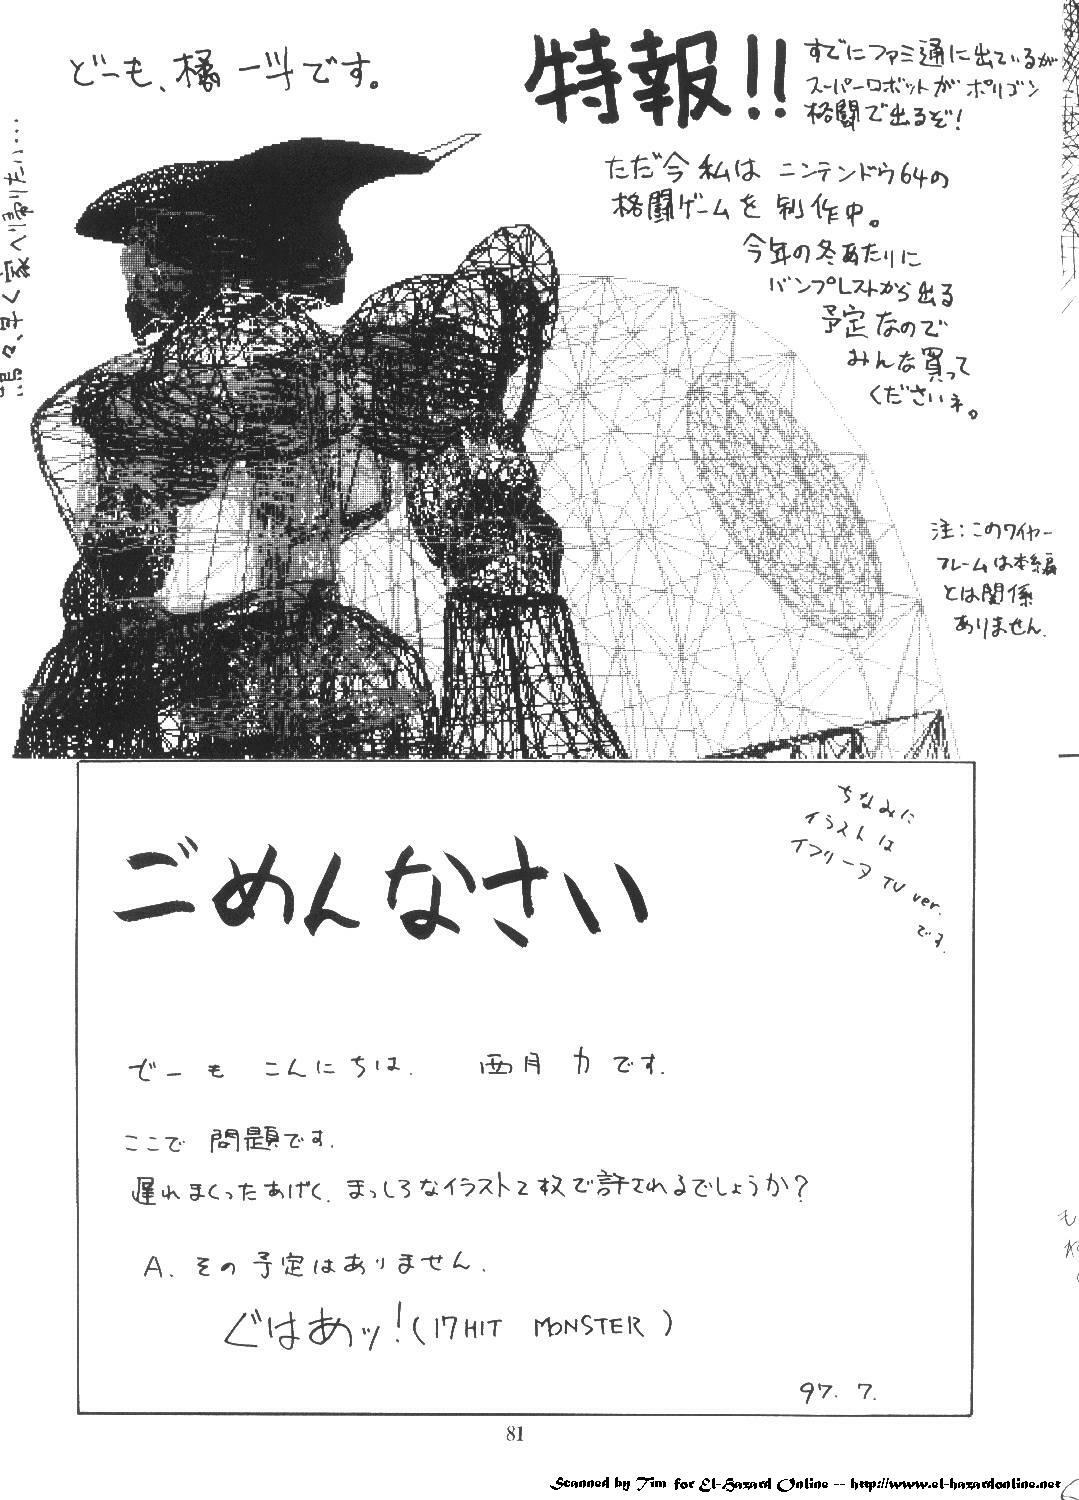 どーも、橘 一斗です。
特報!!
すでにファミ通に出ているが
スーパーロボットが ポリゴン
格闘で出るぞ!
ただ今 私は ニンテンドウ64の
格闘ゲームを 制作中。
今年の冬あたりに
バンプレストから出る
予定なので
みんな買って
くださいネ。
注:このワイヤー
フレームは本編
とは関係
ありません.
ちなみに
イラストは
イフリータ TV ver.
です.
ごめんなさい
どーも こんにちは. 西月 力です.
ここで 問題です.
遅れまくったあげく、まっしろなイラスト2枚で許されるでしょうか?
A. その予定はありません.
ぐはあッ!(17HIT MONSTER)
97. 7.
81
Scanned by Tim for El-Hazard Online -- http://www.el-hazardonline.net